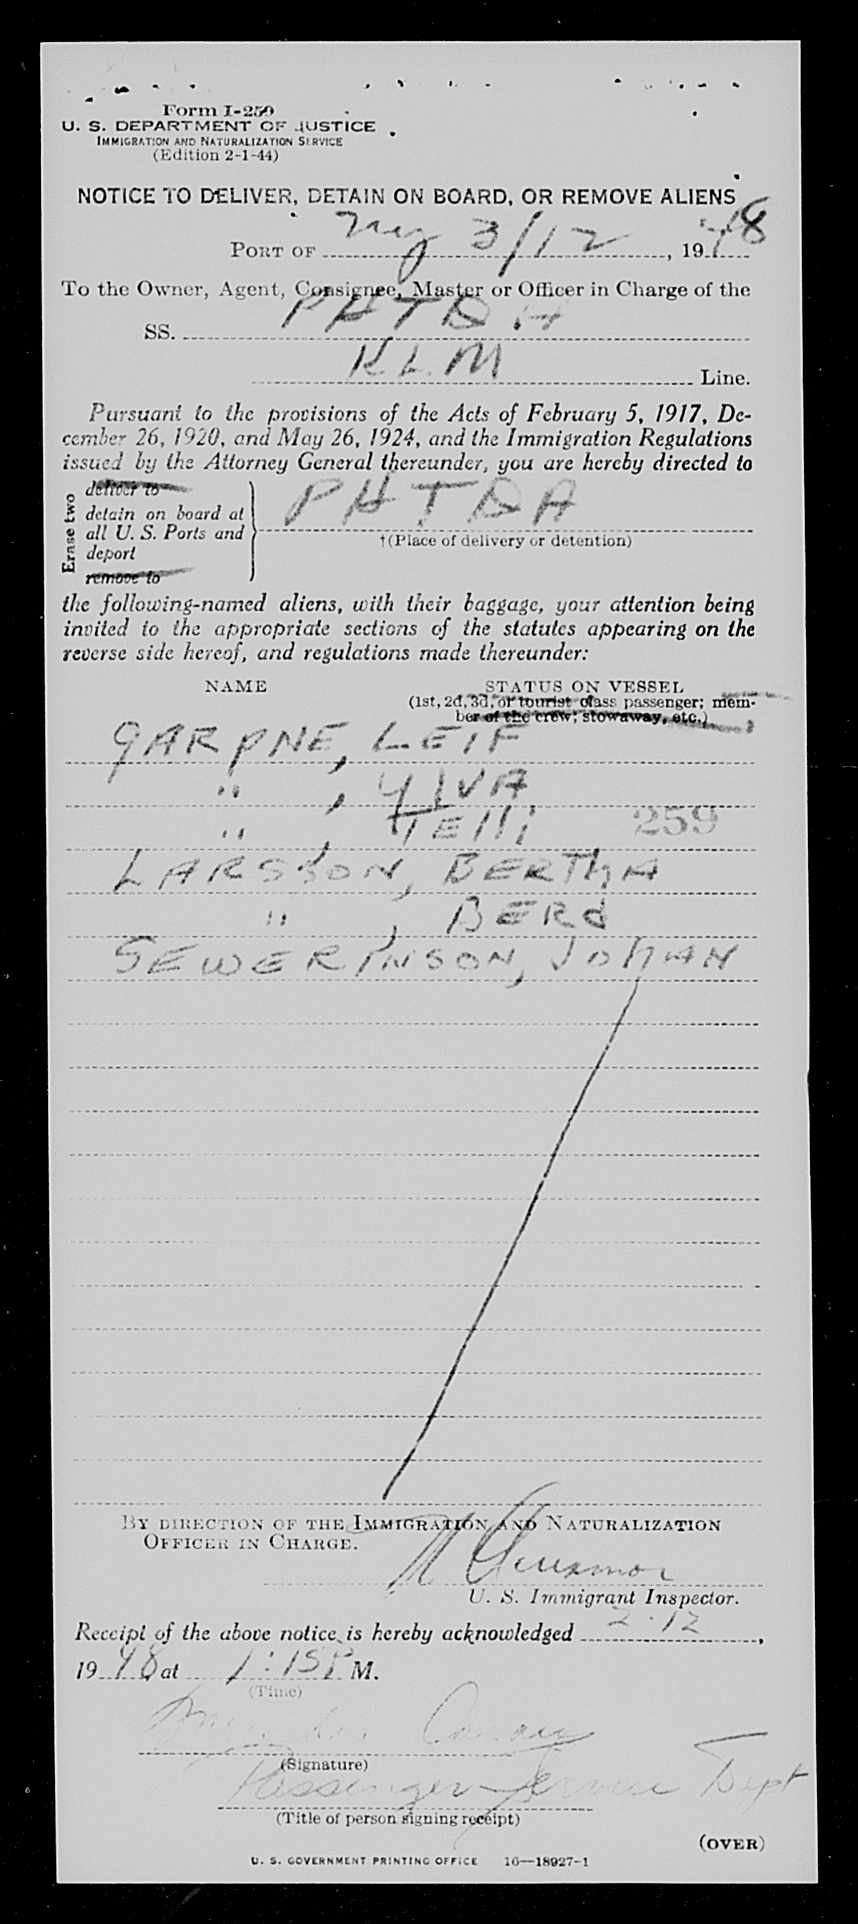 Form I-259
U. S. DEPARTMENT OF JUSTICE
IMMIGRATION AND NATURALIZATION SERVICE
(Edition 2-1-44)
NOTICE TO DELIVER, DETAIN ON BOARD, OR REMOVE ALIENS
PORT OF NY 3/12, 1948
To the Owner, Agent, Consignee, Master or Officer in Charge of the
SS. PHTDA
KLM Line.
Pursuant to the provisions of the Acts of February 5, 1917, De-
cember 26, 1920, and May 26, 1924, and the Immigration Regulations
issued by the Attorney General thereunder, you are hereby directed to
Erase two
deliver to
detain on board at
all U. S. Ports and
deport
remove to
PHTDA
†(Place of delivery or detention)
the following-named aliens, with their baggage, your attention being
invited to the appropriate sections of the statutes appearing on the
reverse side hereof, and regulations made thereunder:
NAME STATUS ON VESSEL
(1st, 2d, 3d, or tourist class passenger; mem-
ber of the crew; stowaway, etc.)
GARPNE, LEIF
" , YIVA
" , TElli 259
LARSSON, BERTHA
" , BERd
SEWERINSON, JOHAN
BY DIRECTION OF THE IMMIGRATION AND NATURALIZATION
OFFICER IN CHARGE.
U. S. Immigrant Inspector.
Receipt of the above notice is hereby acknowledged 2-12,
1948 at 1:15 P M.
(Time)
(Signature)
Passenger Service Dept
(Title of person signing receipt)
(OVER)
U. S. GOVERNMENT PRINTING OFFICE 16—18927-1